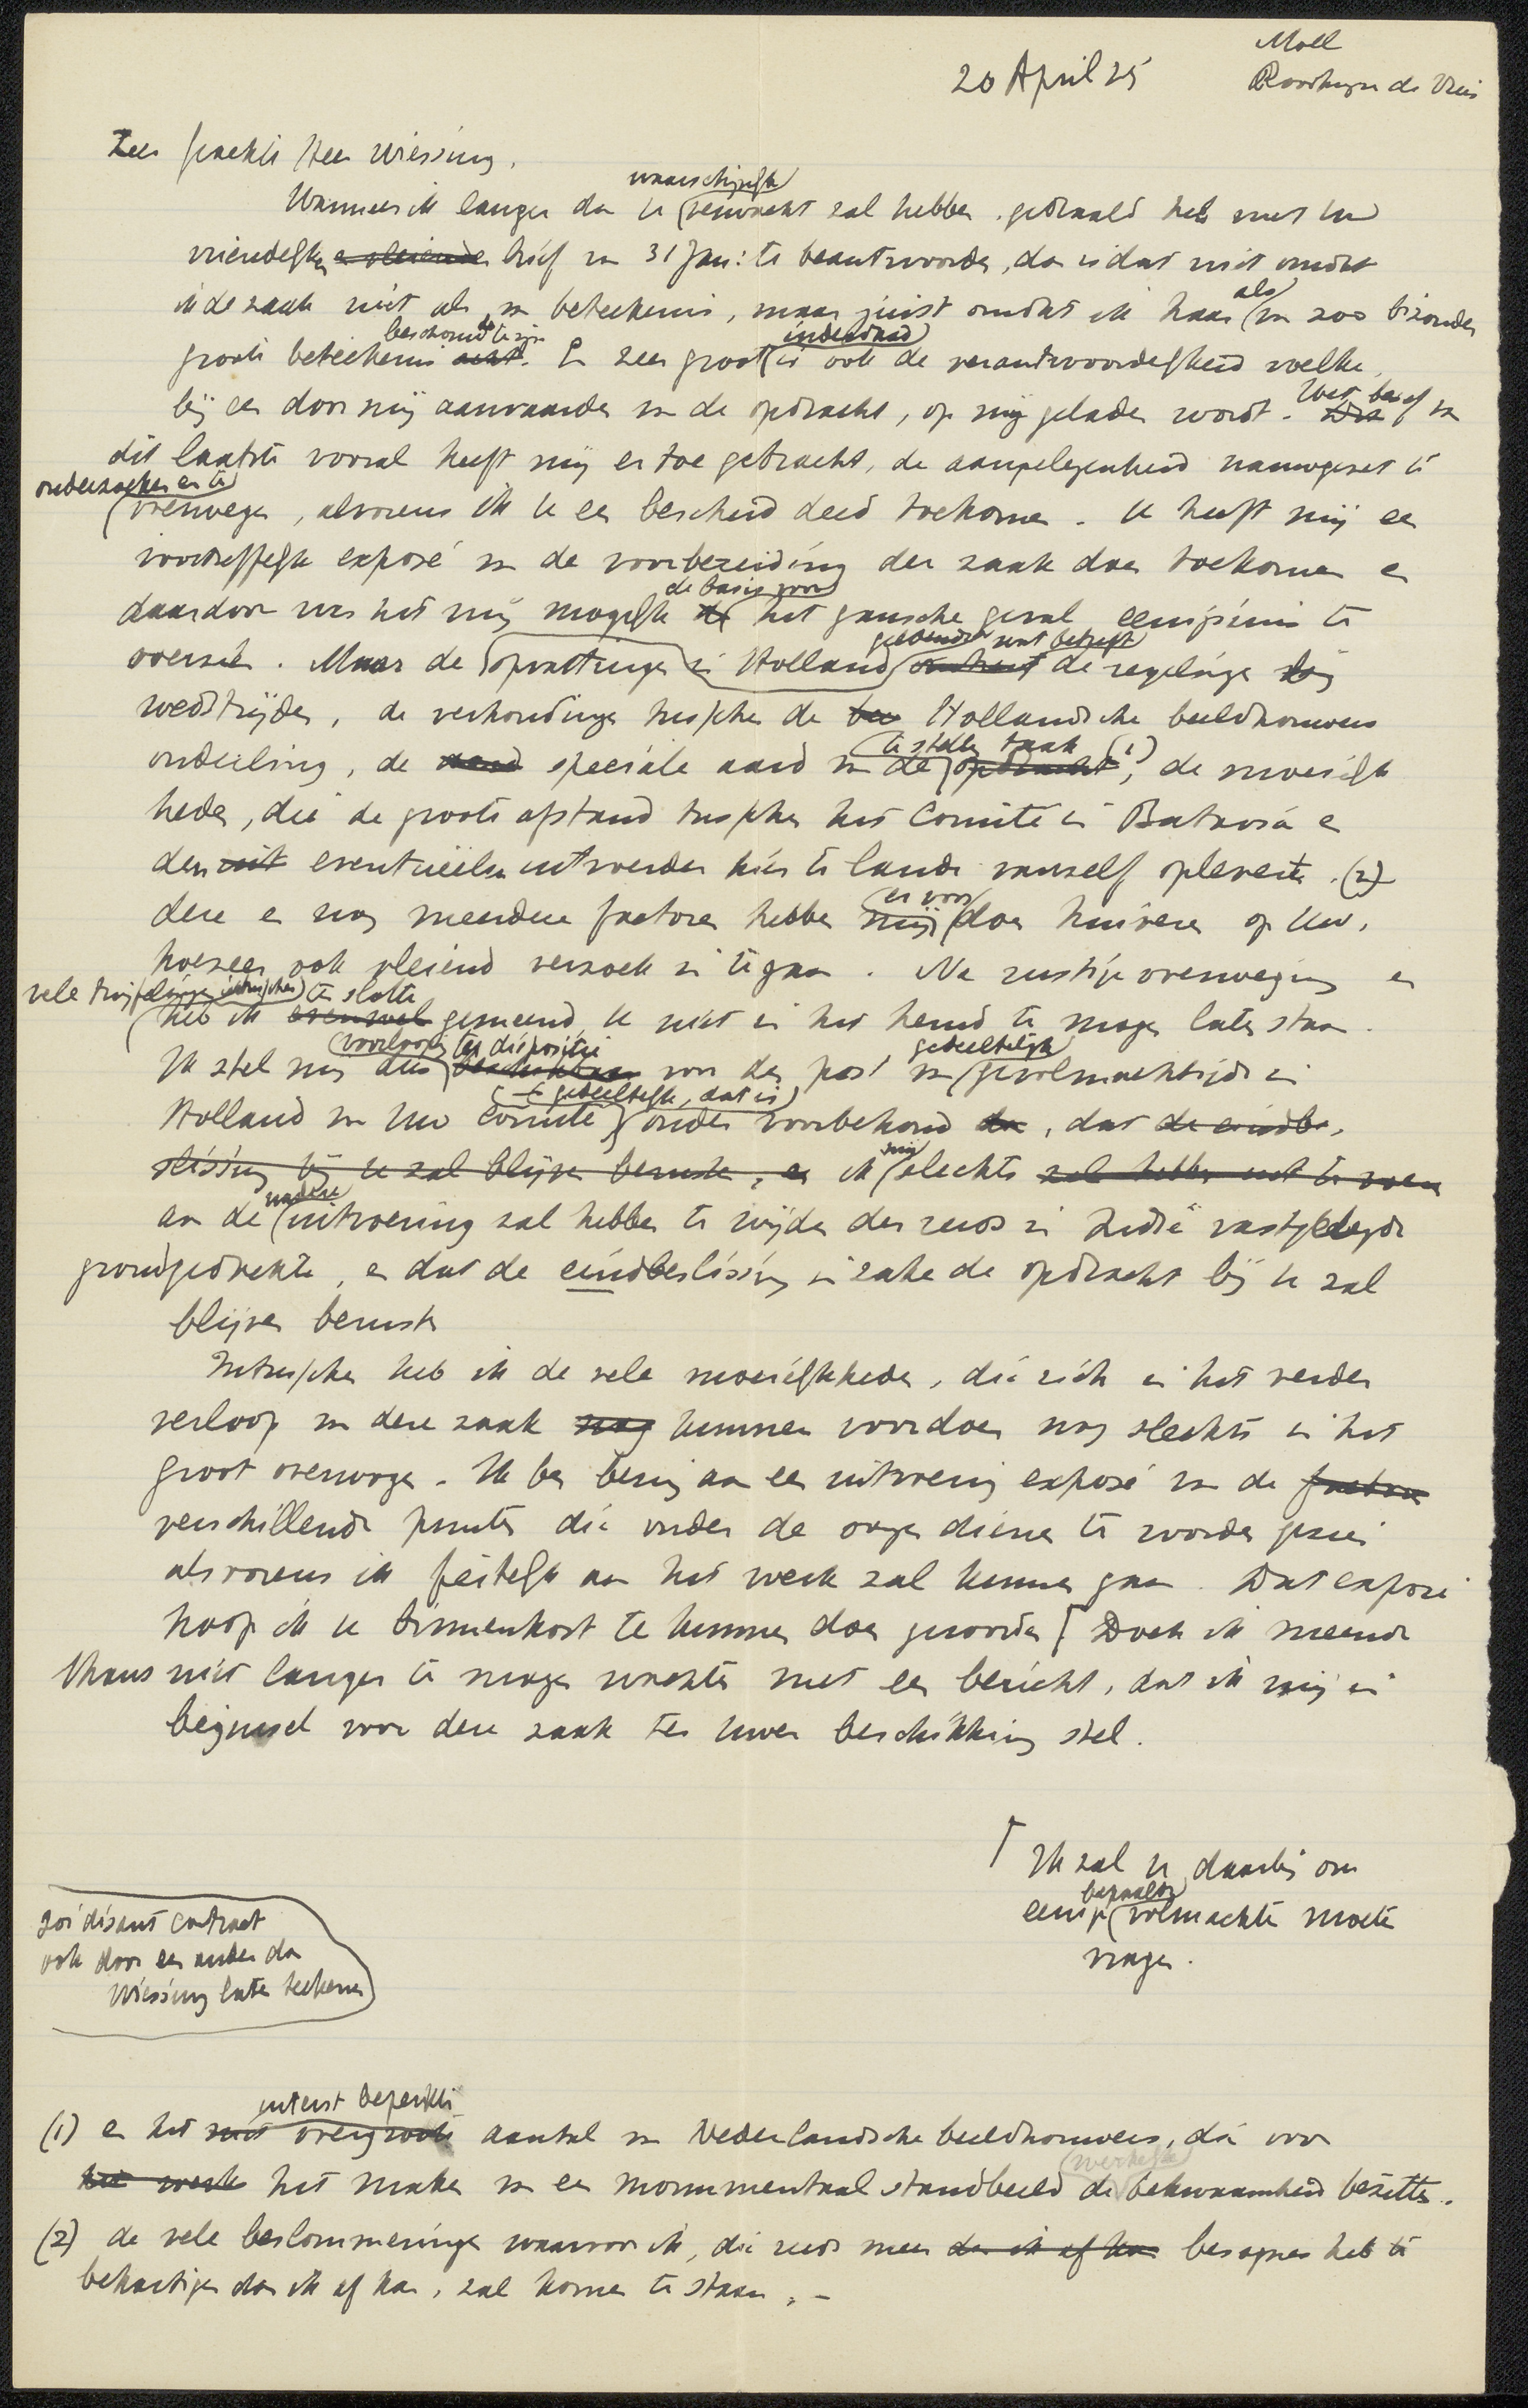 Moll
20 April 25
Roorhuyse de Vries
Zeer geachte Heer Wiessing,
waarschijnlijk
Wanneer ik langer dan U verwacht zal hebben, gedraald heb met Uw
vriendelijken en vleienden brief van 31 Jan: te beantwoorden, dan is dat niet omdat
als
ik de zaak niet als van beteekenis, maar juist omdat ik haar van zoo bizonder
beschouwde te zijn inderdaad
groote beteekenis acht. En zeer groot is ook de verantwoordelijkheid welke,
bij een door mij aanvaarden van de opdracht, op mij geladen wordt. Het besef van
dit laatste vooral heeft mij er toe gebracht, de aangelegenheid nauwgezet te
onderzoeken en te
overwegen, alvorens ik U een bescheid deed toekomen. U heeft mij een
voortreffelijk exposé van de voorbereiding der zaak doen toekomen en
de basis voor
daardoor was het mij mogelijk de het gansche geval eenigszins te
geldende wat betreft
overzien. Maar de opvattingen in Holland omtrent de regelingen bij
wedstrijden, de verhoudingen tusschen de bee Hollandsche beeldhouwers
te stellen taak (1)
onderling, de aard speciale aard van de opdracht, de moeielijk
heden, die de groote afstand tusschen het Comité in Batavia en
den uit eventueelen ontwerper hier te lande vanzelf oplevert, (2)
er voor
deze en nog meerdere factoren hebben mij doen huiveren op Uw,
hoezeer ook vleiend verzoek in te gaan. Na rustige overweging en
vele twijfelingen intusschen te slotte
heb ik evenwel gemeend U niet in het hemd te mogen laten staan.
voorloopig ter dispositie gedeeltelijk
Ik stel mij dus beschikbaar voor den post van gevolmachtigde in
- gedeeltelijk, dat is
Holland van Uw Comité onder voorbehoud dan, dat de eindbe-
mij
slissing bij U zal blijven berusten, en ik slechts zal hebben uit te voeren
nadere
aan de uitvoering zal hebben te wijden der reeds in Indië vastgelegde
grondgedachte, en dat de eindbeslissing inzake de opdracht bij U zal
blijven berusten
Intusschen heb ik de vele moeielijkheden, die zich in het verder
verloop van deze zaak nog kunnen voordoen nog slechts in het
groot overwogen. Ik ben bezig aan een uitvoerig exposé van de factoren
verschillende punten die onder de oogen dienen te worden gezien
alvorens ik feitelijk aan het werk zal kunnen gaan. Dat exposé
hoop ik U binnenkort te kunnen doen geworden ⌈ Doch ik meende
thans niet langer te mogen wachten met een bericht, dat ik mij in
beginsel voor deze zaak ter Uwer beschikking stel.
⌈ Ik zal U daarbij om
bepaalde
eenige volmachten moeten
vragen.
soi disant contract
ook door een ander dan
Wiessing laten teekenen
uiterst beperkte
(1) en het niet overgroote aantal van Nederlandsche beeldhouwers, die voor
(werkelijk)
het werk het maken van een monumentaal standbeeld de bekwaamheid bezitten.
(2) de vele beslommeringen waarvoor ik, die reeds meer dan ik af kan besognes heb te
behartigen dan ik af kan, zal komen te staan, -